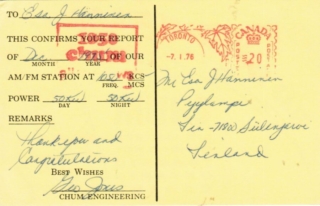 TO Esa J Hanninen
THIS CONFIRMS YOUR REPORT
OF Dec OF OUR
MONTH YEAR
AM/FM STATION AT 1050 KCS
FREQ. MCS
POWER 50KW 50KW
DAY NIGHT
REMARKS
Thank you and
Congratulations
BEST WISHES
CHUM ENGINEERING
chum
TORONTO
-7.1.76
CANADA
20
Mr Esa J Hanninen
Finland